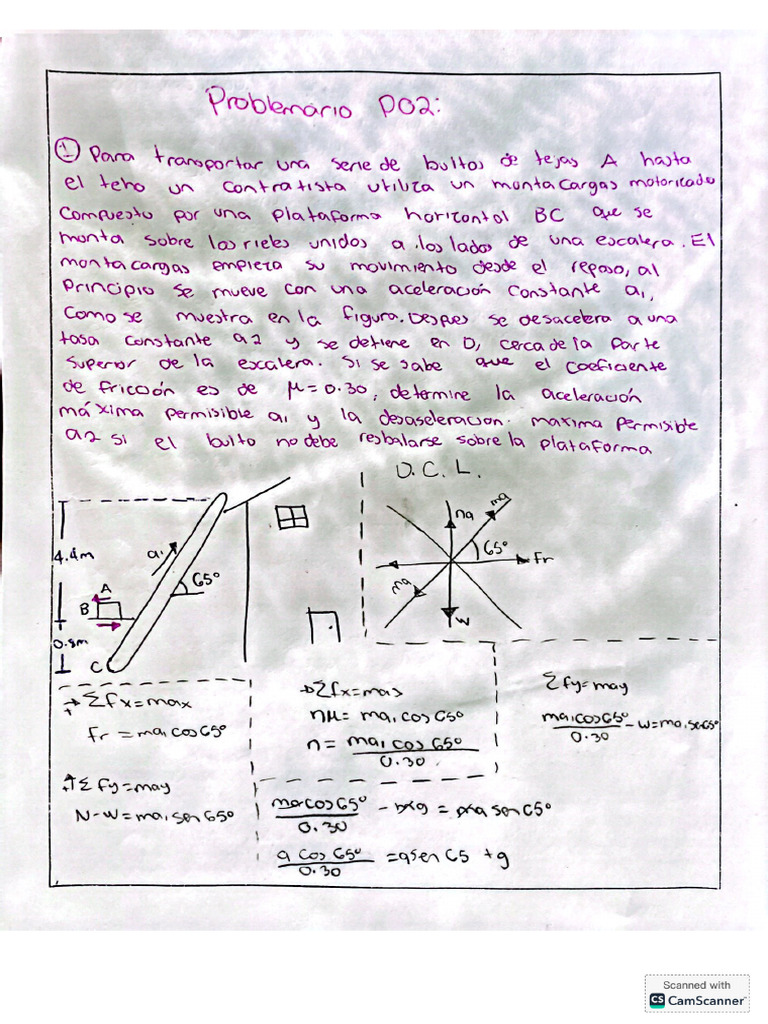 Problemario P02:
① Para transportar una serie de bultos de tejas A hasta
el teho un contratista utiliza un montacargas motorizado
compuesto por una plataforma horizontal BC que se
monta sobre los rieles unidos a los lados de una escalera. El
montacargas empieza su movimiento desde el reposo, al
principio se mueve con una aceleración constante a1,
como se muestra en la figura. Despues se desacelera a una
tasa constante a2 y se detiene en D, cerca de la parte
superior de la escalera. Si se sabe que el coeficiente
de fricción es de μ=0.30, determine la aceleración
máxima permisible a1 y la desaseleracion maxima permisible
a2 si el bulto no debe resbalarse sobre la plataforma
D.C.L.
4.4m
a1
65°
A
B
0.8m
C
na
ma
65°
Fr
ma
W
→+ Σfx=max
fr = ma1 cos65°
↑+ Σfy=may
N-W=ma1 sen65°
→Σfx=max
nμ= ma1 cos65°
n= ma1 cos 65° / 0.30
Σfy=may
ma1cos65° / 0.30 - W=ma1 sen65°
macos65° / 0.30 - mg = ma sen65°
a cos 65° / 0.30 =asen 65 +g
Scanned with
CS CamScanner